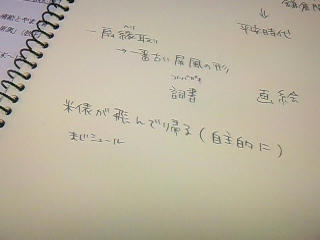 鎌倉
↓
平安時代
へり
一扇縁取り
→一番古い屏風の形
ことばがき
詞書　画　絵
米俵が飛んで帰る(自主的に)
まじシュール